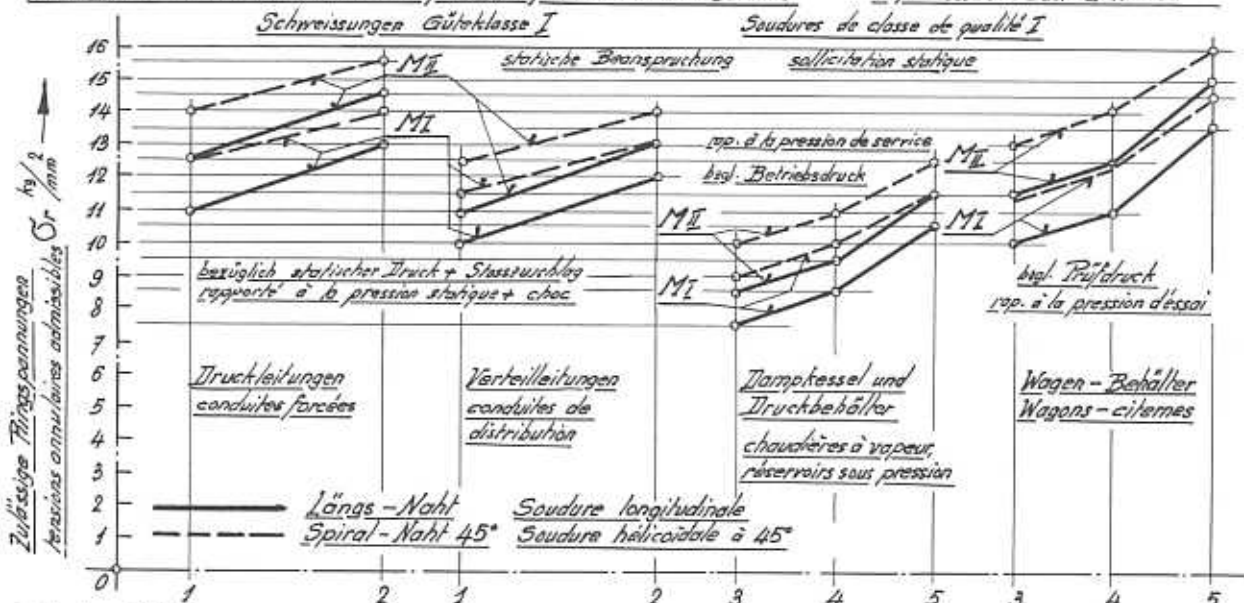 Schweissungen Güteklasse I
Soudures de classe de qualité I
statische Beanspruchung
sollicitation statique
Zulässige Ringspannungen
tensions annulaires admissibles
σr kg/mm²
16
15
14
13
12
11
10
9
8
7
6
5
4
3
2
1
0
M II
M I
rap. à la pression de service
bzgl. Betriebsdruck
M II
M I
M II
M I
bezüglich statischer Druck + Stosszuschlag
rapporté à la pression statique + choc
bzgl. Prüfdruck
rap. à la pression d'éssai
Druckleitungen
conduites forcées
Verteilleitungen
conduites de
distribution
Dampkessel und
Druckbehälter
chaudières à vapeur,
réservoirs sous pression
Wagen-Behälter
Wagons-citernes
Längs-Naht Soudure longitudinale
Spiral-Naht 45° Soudure hélicoïdale à 45°
1 2 1 2 3 4 5 3 4 5